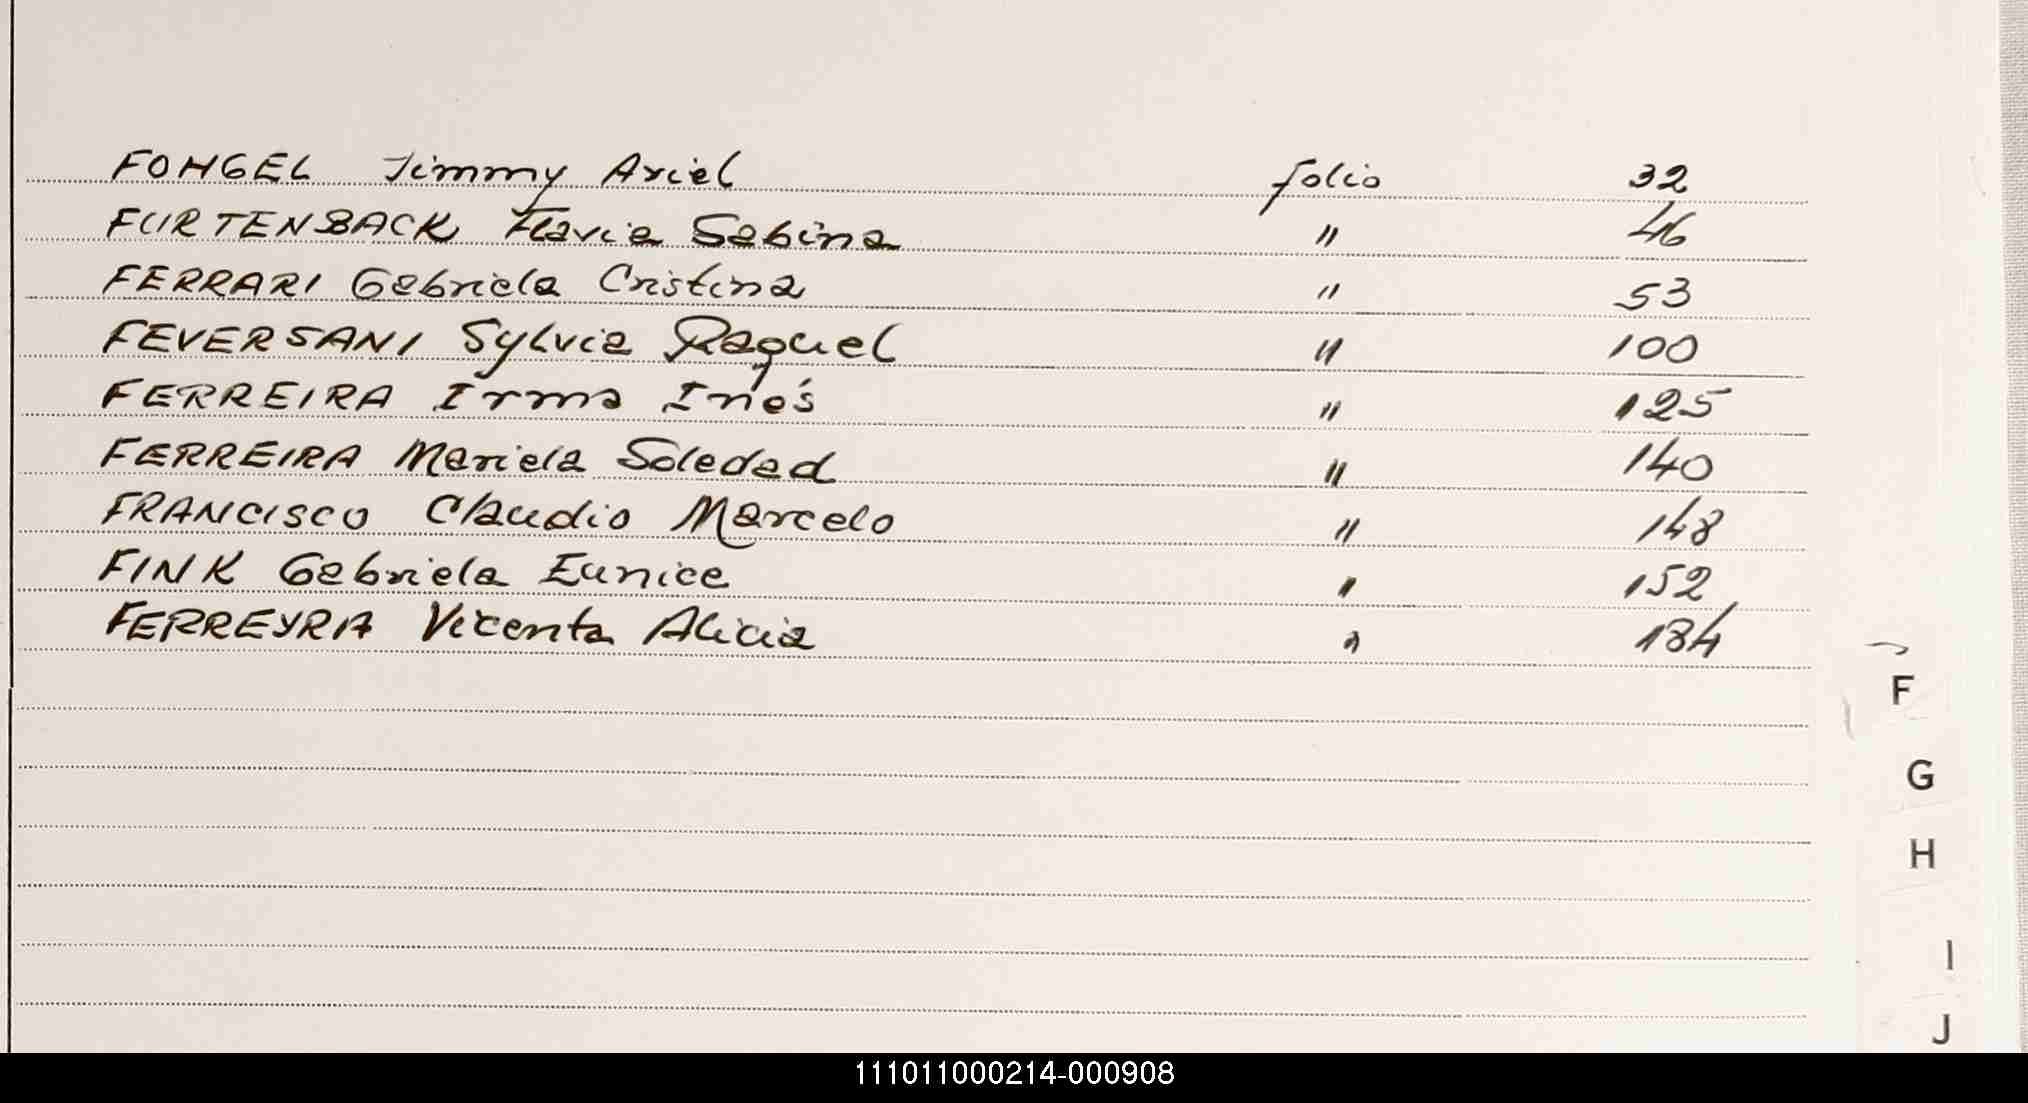 FOHGEL Jimmy Ariel folio 32
FURTENBACK Flavia Sabina " 46
FERRARI Gabriela Cristina " 53
FEVERSANI Sylvia Raquel " 100
FERREIRA Irma Inés " 125
FERREIRA Mariela Soledad " 140
FRANCISCO Claudio Marcelo " 148
FINK Gabriela Eunice " 152
FERREYRA Vicenta Alicia " 184
F
G
H
I
J
111011000214-000908